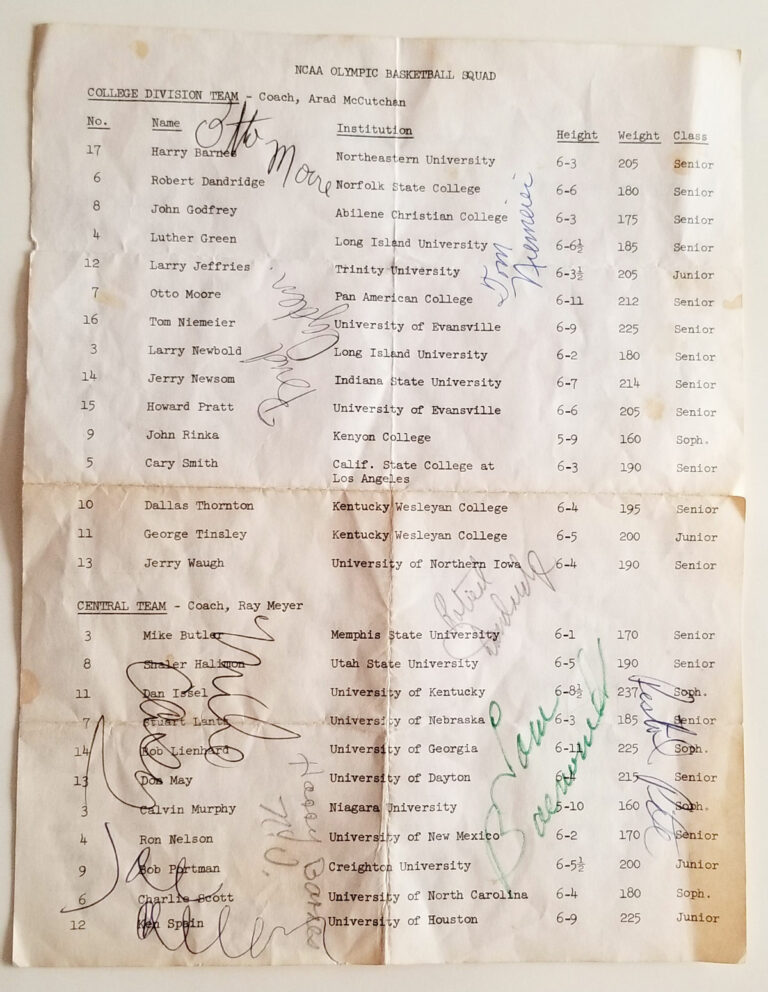 NCAA OLYMPIC BASKETBALL SQUAD
COLLEGE DIVISION TEAM - Coach, Arad McCutchan
No. Name Institution Height Weight Class
17 Harry Barnes Northeastern University 6-3 205 Senior
6 Robert Dandridge Norfolk State College 6-6 180 Senior
8 John Godfrey Abilene Christian College 6-3 175 Senior
4 Luther Green Long Island University 6-6½ 185 Senior
12 Larry Jeffries Trinity University 6-3½ 205 Junior
7 Otto Moore Pan American College 6-11 212 Senior
16 Tom Niemeier University of Evansville 6-9 225 Senior
3 Larry Newbold Long Island University 6-2 180 Senior
14 Jerry Newsom Indiana State University 6-7 214 Senior
15 Howard Pratt University of Evansville 6-6 205 Senior
9 John Rinka Kenyon College 5-9 160 Soph.
5 Cary Smith Calif. State College at 6-3 190 Senior
Los Angeles
10 Dallas Thornton Kentucky Wesleyan College 6-4 195 Senior
11 George Tinsley Kentucky Wesleyan College 6-5 200 Junior
13 Jerry Waugh University of Northern Iowa 6-4 190 Senior
CENTRAL TEAM - Coach, Ray Meyer
3 Mike Butler Memphis State University 6-1 170 Senior
8 Shaler Halimon Utah State University 6-5 190 Senior
11 Dan Issel University of Kentucky 6-8½ 237 Soph.
7 Stuart Lantz University of Nebraska 6-3 185 Senior
14 Bob Lienhard University of Georgia 6-11 225 Soph.
13 Don May University of Dayton 215 Senior
3 Calvin Murphy Niagara University 5-10 160 Soph.
4 Ron Nelson University of New Mexico 6-2 170 Senior
9 Bob Portman Creighton University 6-5½ 200 Junior
6 Charlie Scott University of North Carolina 6-4 180 Soph.
12 Ken Spain University of Houston 6-9 225 Junior
Otto Moore
Tom Niemeier
Harry Barnes